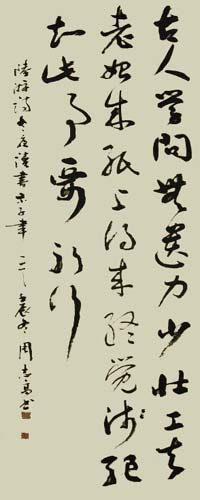 古人学問無遺力少壮工夫
老始成紙上得来終覺浅绝
知此事要躬行
陸游詩冬夜读書示子聿 壬辰冬 周志高书